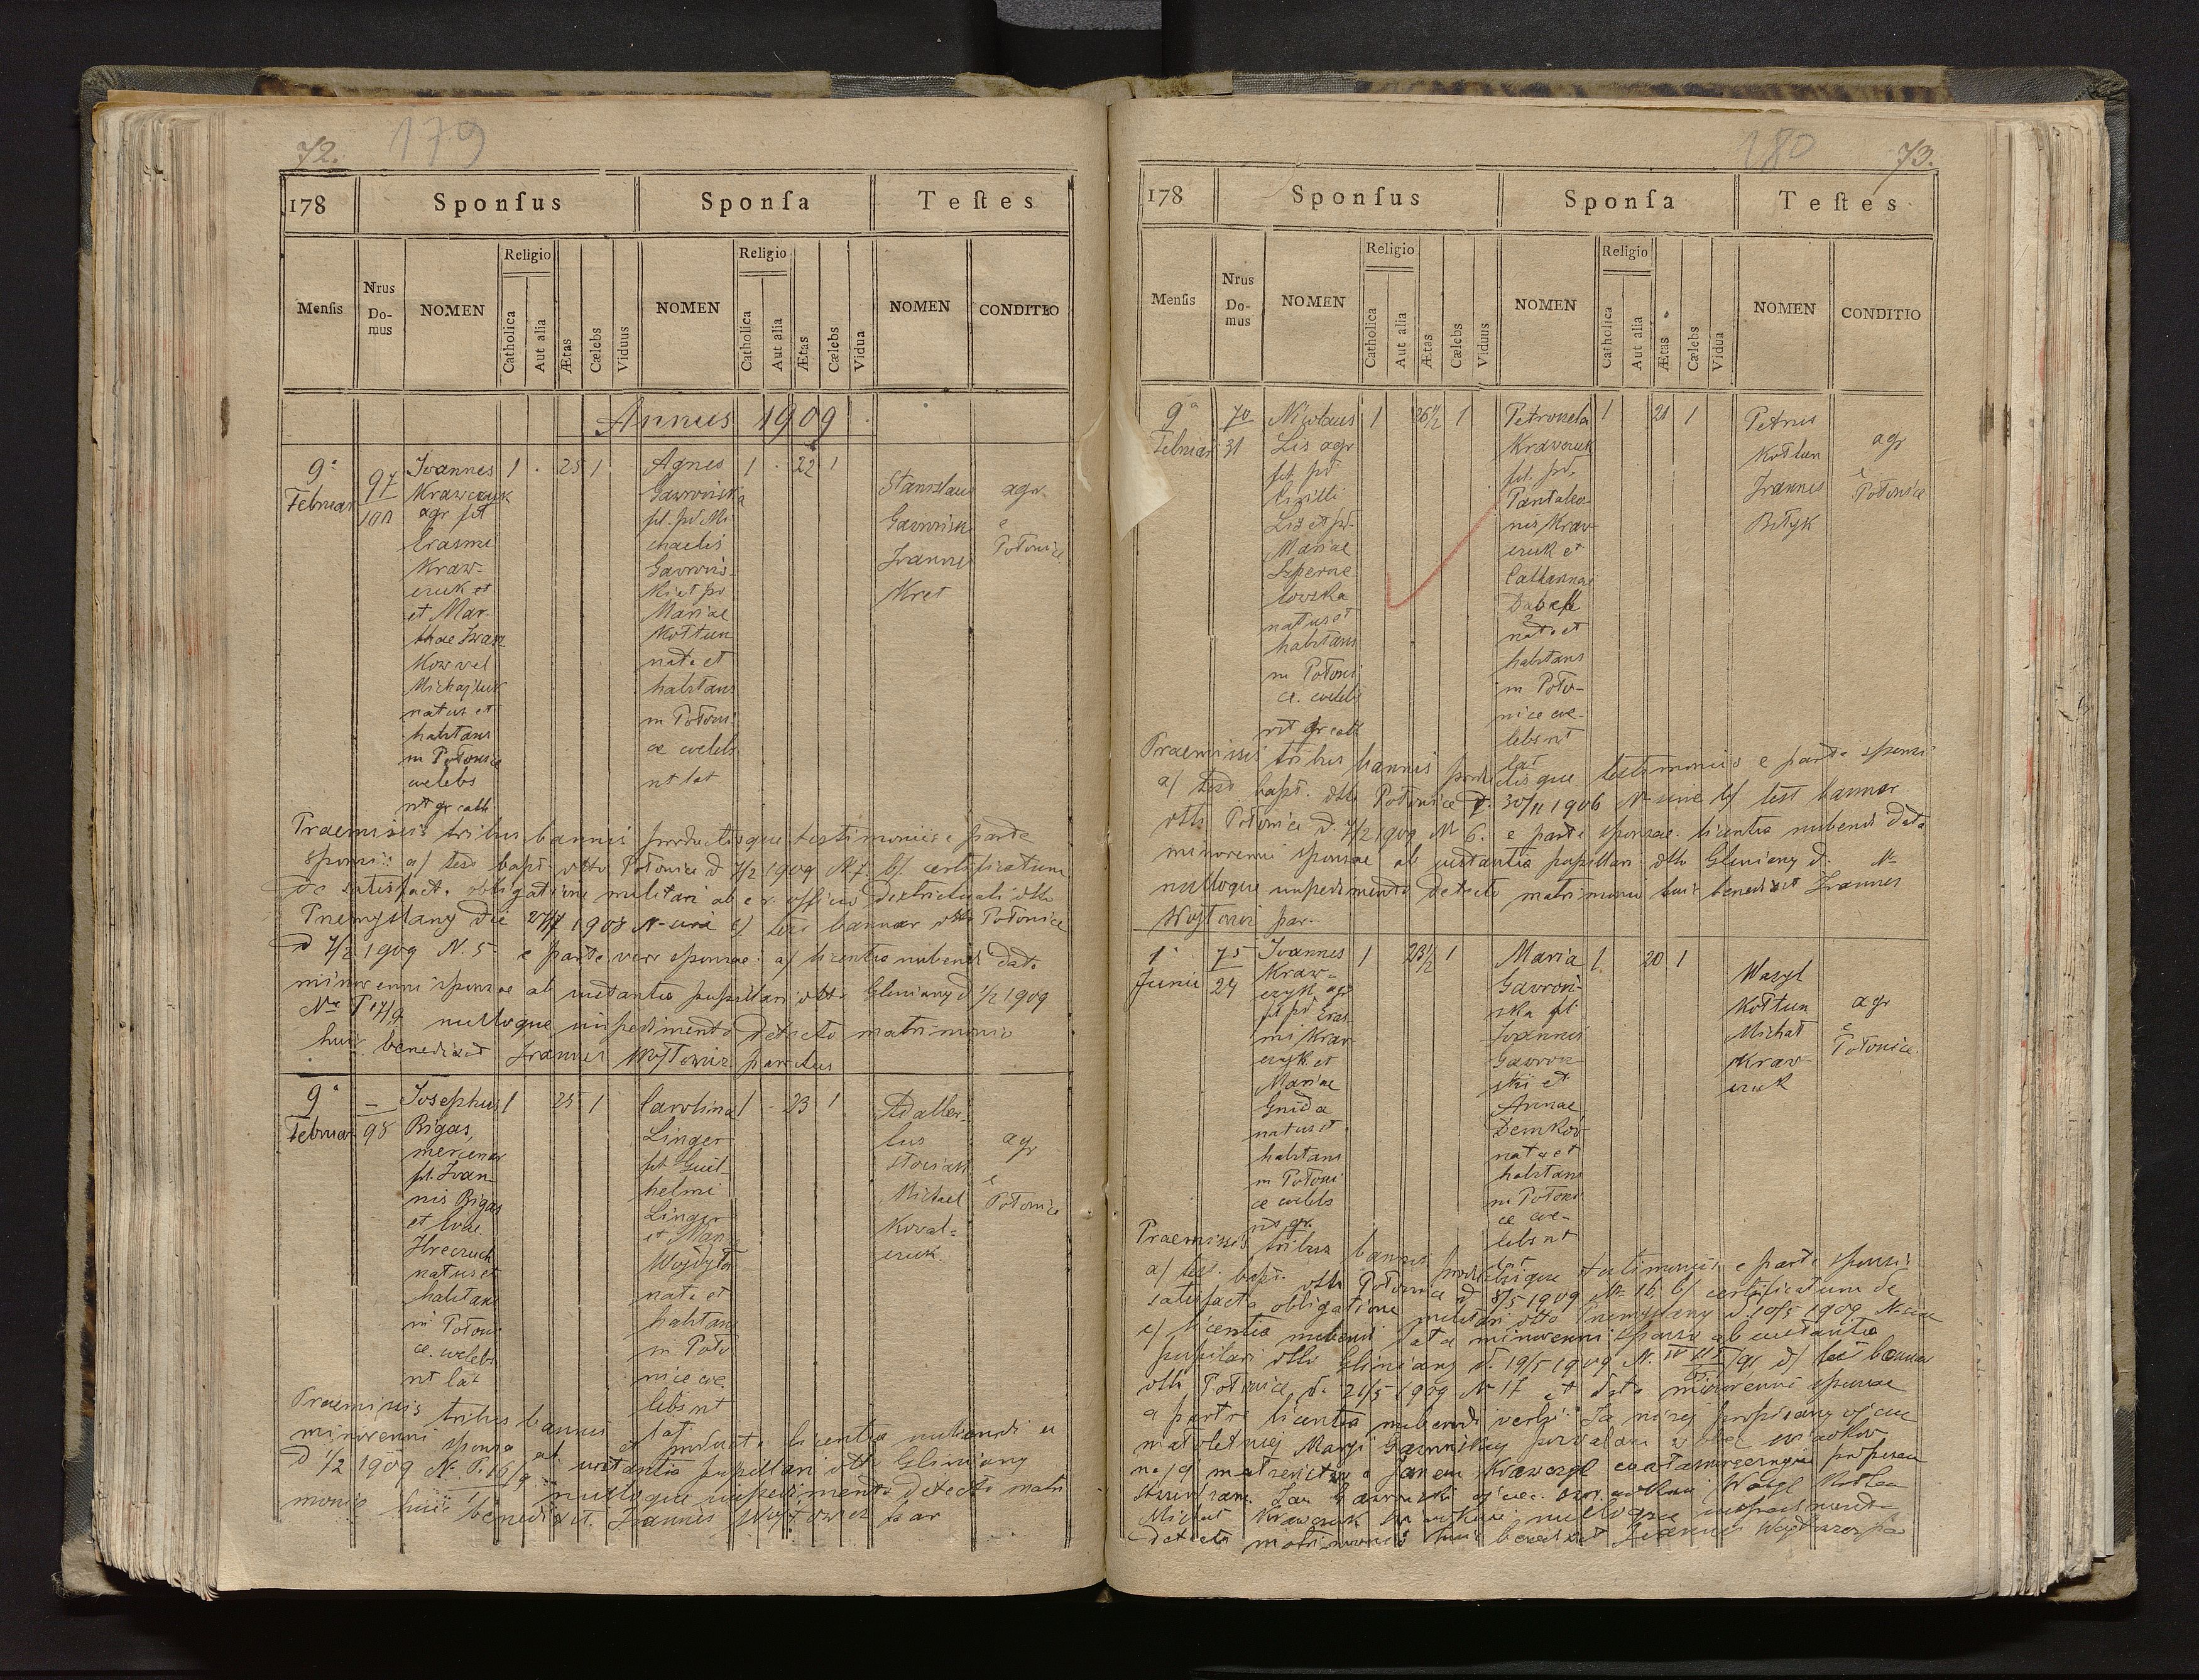 72. 179
178 Sponſus Sponſa Teſtes
Menſis Nrus Domus NOMEN Religio Catholica Aut alia Ætas Cælebs Viduus NOMEN Religio Catholica Aut alia Ætas Cælebs Vidua NOMEN CONDITIO
Annus 1909
9a
Februar
97
Joannes
Krawczuk
agr fil
Erasmi
Kraw-
czuk et
et Mar
thae Iwasz
Kow vel
Michajluk
natus et
habitans
in Połonice
coelebs
rit gr cath
1 25 1
Agnes
Gawrońska
fil. pd Mi
chaelis
Gawroń-
ski et pd
Mariae
Kołtun
nata et
habitans
in Połoni
ce coelebs
rit lat
1 22 1
Stanislaus
Gawroński
Joannes
Kret
agr
e
Połonice
Praemissis tribus bannis productisque testimoniis e parte
sponsi: a/ test bapt. dtto Połonice d 7/2 1909 N 7. b/ certificatum
de satisfact. obligatione militari ab c. r. officio districtuali dtto
Przemyślany die 27/7 1908 N- c/ test bannor dtto Połonice
d 7/2 1909 N. 5. e parte vero sponsae: a/ licentia nubendi data
minorenni sponsae ab instantia pupillari dtto Gliniany d 1/2 1909
No P 17/9 nulloque impedimento detecto matrimonio
huic benedixit Joannes Wojtowicz parochus
9a
Februar
98
Josephus
Bigas,
mercenar
fil. Joan
nis Bigas
et Evae
Hreczuch
natus et
habitans
in Połoni
ce. coelebs
rit lat
1 25 1
Carolina
Linger
fil Guil-
helmi
Linger
et Mariae
Wojdyła
nata et
habitans
in Poło
nice coe
lebs rit
lat
1 23 1
Adalber-
tus
Michael
Kowal-
czuk
agr
e
Połonice
Praemissis tribus bannis et producta licentia nubendi a
minorenni sponsa ab instantia pupillari dtto Gliniany
d 1/2 1909 N. P. 16/9 nulloque impedimento detecto matri
monio huic benedixit Joannes Wojtowicz par
180 73.
178 Sponſus Sponſa Teſtes
Menſis Nrus Domus NOMEN Religio Catholica Aut alia Ætas Cælebs Viduus NOMEN Religio Catholica Aut alia Ætas Cælebs Vidua NOMEN CONDITIO
9a
Februar
70
31
Nicolaus
Lis agr
fil. pd
Cyrilli
Lis et pd.
Mariae
natus et
habitans
in Połoni
ce. coelebs
rit gr cath
1 26 1/2 1
Petronela
Krawczuk
fil. pd.
Pantaleo-
nis Kraw-
czuk et
Catharinae
nata et
habitans
in Poło-
nice coe-
lebs rit
lat
1 21 1
Petrus
Kołtun
Joannes
Biłyk
agr
e
Połonice
Praemissis tribus bannis productisque testimoniis e parte sponsi
a/ test bapt. dtto Połonice d. 30/11 1906 N b/ test bannor
dtto Połonice d. 7/2 1909 N 6. e parte sponsae. licentia nubendi data
minorenni sponsae ab instantia pupillari dtto Gliniany d. N-
nulloque impedimento detecto matrimonio huic benedixit Joannes
Wojtowicz par.
1a
Junii
75
24
Joannes
Kraw-
czyk agr
fil pd Eras
mi Kraw
czyk et
Mariae
Gnida
natus et
habitans
in Połoni
ce coelebs
rit gr.
1 23 1/2 1
Maria
Gawroń-
ska fil
Joannis
Gawroń
ski et
Annae
Demków
nata et
habitans
in Połoni
ce coe-
lebs rit
lat
1 20 1
Wasyl
Kołtun
Michał
Kraw-
czuk
agr
e
Połonice.
Praemissis tribus bannis productisque testimoniis e parte sponsi:
a/ test. bapt. dtto Połonice d 8/5 1909 No 16 b/ certificatum de
satisfacta obligatione militari dtto Przemyślany d 10/5 1909 N
c/ licentia nubendi data minorenni sponso ab instantia
pupilari dtto Gliniany d. 19/5 1909 N. d/ test bannor
dtto Połonice d. 26/5 1909 N 17 et data minorenni sponsae
a patre licentia nubendi verbis: "Ja niżej podpisany ojciec
małoletniej Maryi Gawrońskiej pozwalam wobec świadków
na jej małżeństwo z Janem Krawczyk
Jan Gawroński ojciec. Wasyl Kołtun
Michał Krawczuk świadkowie nulloque impedimento
detecto matrimonio huic benedixit Joannes Wojtowicz par